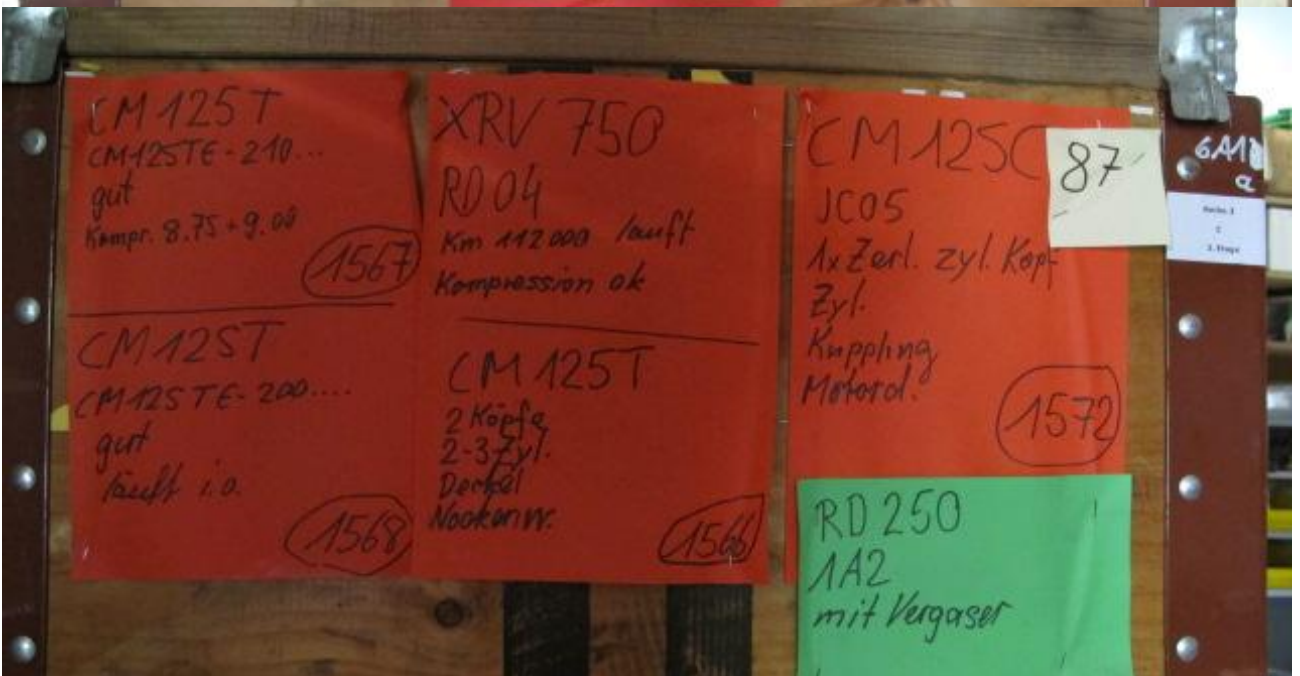 CM 125T
CM125TE-210...
gut
Kompr. 8.75 + 9.00
1567
CM 125T
CM125TE-200....
gut
läuft i.o.
1568
XRV 750
RD04
Km 112000 läuft
Kompression ok
CM 125T
2 Köpfe
2-3 Zyl.
Deckel
Nockenw.
1566
CM 125C
JC05
1x Zerl. zyl. Kopf
Zyl.
Kuppling
Motord.
1572
87
RD 250
1A2
mit Vergaser
a
2